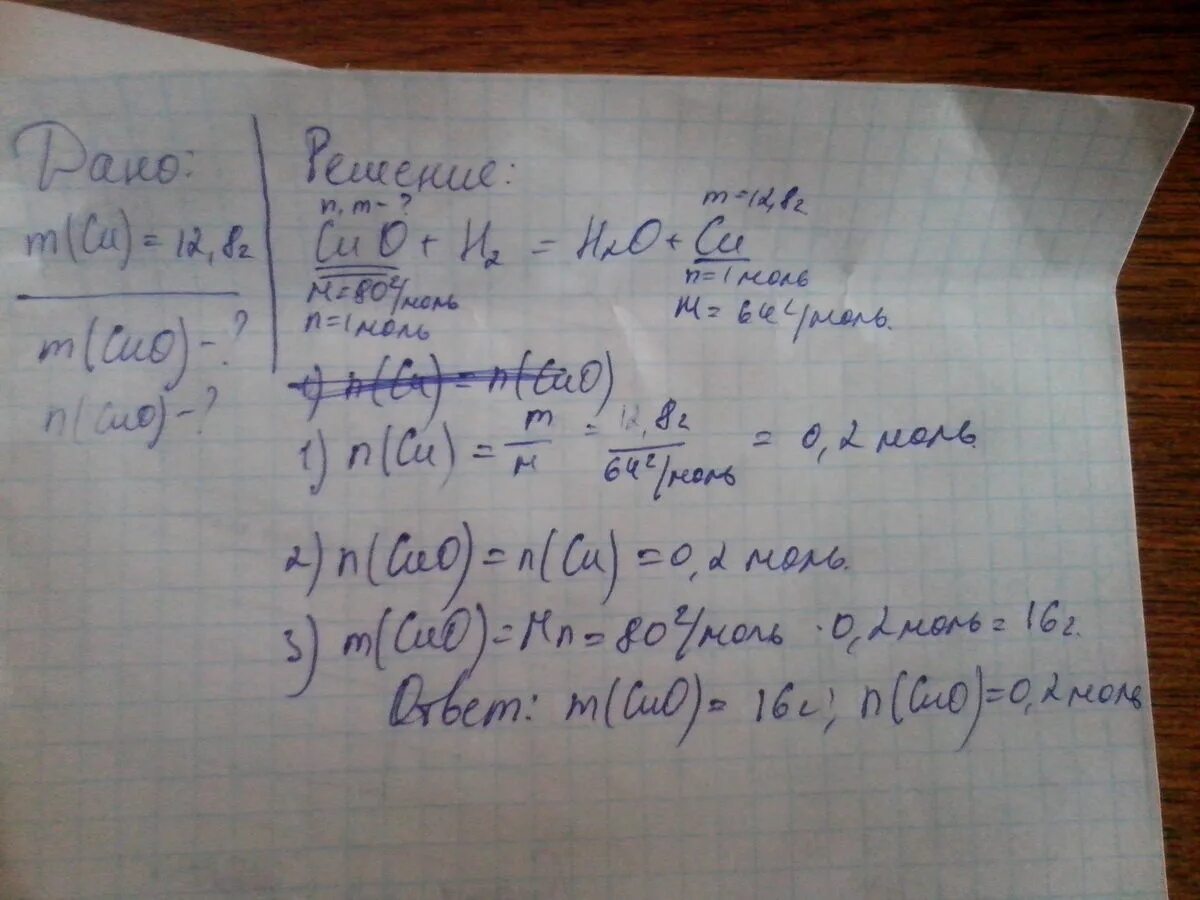 Дано:
m(Cu) = 12,8г
m(CuO) - ?
n(CuO) - ?
Решение:
n, m - ?
m = 12,8г
CuO + H₂ = H₂O + Cu
M = 80 г/моль
n = 1 моль
n = 1 моль
M = 64 г/моль.
1) n(Cu) = n(CuO)
1) n(Cu) = m/M = 12,8г/64 г/моль = 0,2 моль.
2) n(CuO) = n(Cu) = 0,2 моль.
3) m(CuO) = Mn = 80 г/моль · 0,2 моль = 16г.
Ответ: m(CuO) = 16г; n(CuO) = 0,2 моль